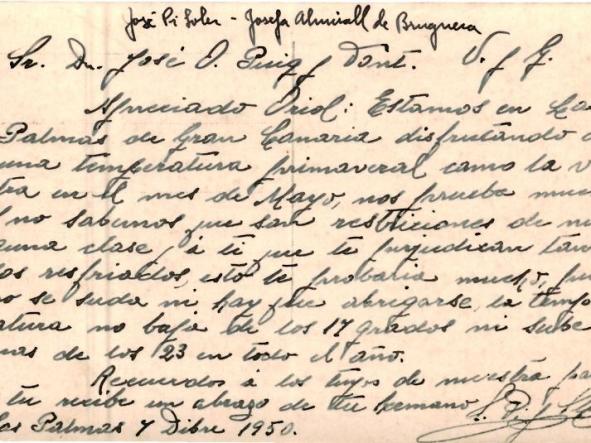 José Pi Soler - Josefa Almirall de Bruguera
Sr. Dn. José O. Puig y Font. V. y G.
Apreciado Oriol: Estamos en Las
Palmas de Gran Canaria disfrutando d
una temperatura primaveral como la v
tra en el mes de Mayo, nos prueba muc
no sabemos que son restriciones de ni
guna clase, á ti que te perjudican tan
los resfriados, esto te probaria mucho, pu
no se suda ni hay que abrigarse, la tempe
ratura no baja de los 17 grados ni sube
mas de los 23 en todo el año.
Recuerdos á los tuyos de nuestra par
tu recibe un abrazo de tu hermano
Las Palmas 7 Dibre 1950.